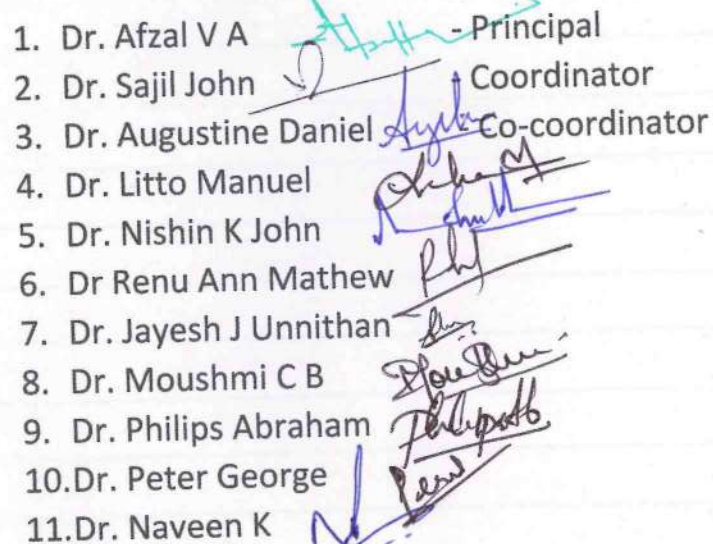 1. Dr. Afzal V A - Principal
2. Dr. Sajil John Coordinator
3. Dr. Augustine Daniel Co-coordinator
4. Dr. Litto Manuel
5. Dr. Nishin K John
6. Dr Renu Ann Mathew
7. Dr. Jayesh J Unnithan
8. Dr. Moushmi C B
9. Dr. Philips Abraham
10.Dr. Peter George
11.Dr. Naveen K